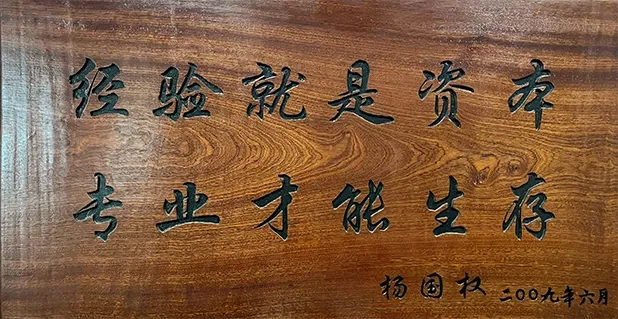 经验就是资本
专业才能生存
杨国权 二〇〇九年六月